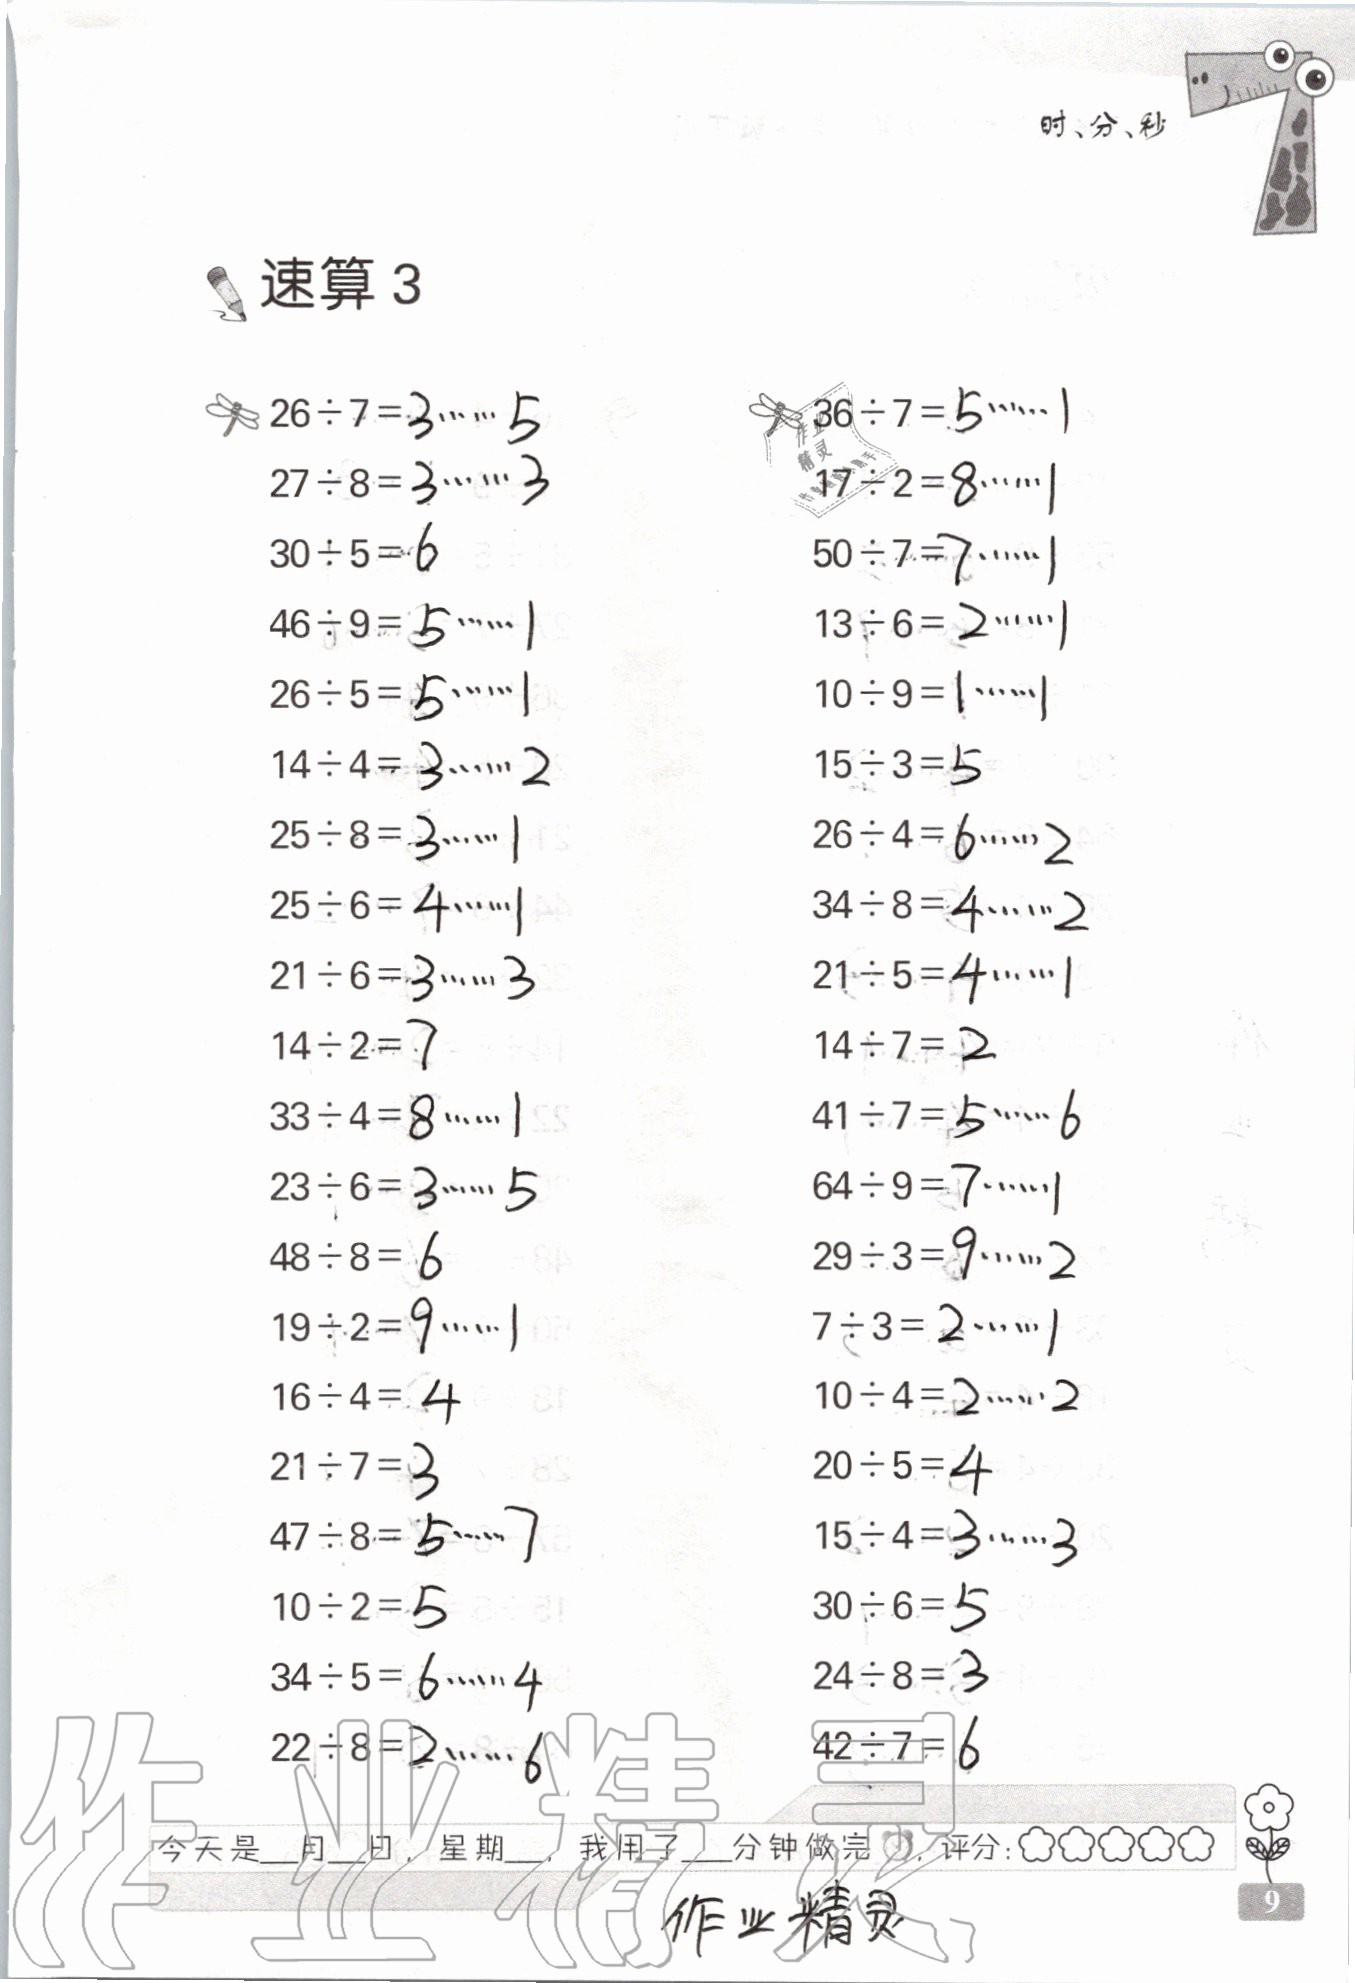 时、分、秒
速算 3
26÷7=3……5
27÷8=3……3
30÷5=6
46÷9=5……1
26÷5=5……1
14÷4=3……2
25÷8=3……1
25÷6=4……1
21÷6=3……3
14÷2=7
33÷4=8……1
23÷6=3……5
48÷8=6
19÷2=9……1
16÷4=4
21÷7=3
47÷8=5……7
10÷2=5
34÷5=6……4
22÷8=2……6
36÷7=5……1
17÷2=8……1
50÷7=7……1
13÷6=2……1
10÷9=1……1
15÷3=5
26÷4=6……2
34÷8=4……2
21÷5=4……1
14÷7=2
41÷7=5……6
64÷9=7……1
29÷3=9……2
7÷3=2……1
10÷4=2……2
20÷5=4
15÷4=3……3
30÷6=5
24÷8=3
42÷7=6
作业
精灵
作业精灵
今天是__月__日，星期__，我用了___分钟做完，评分：
作业精灵
9